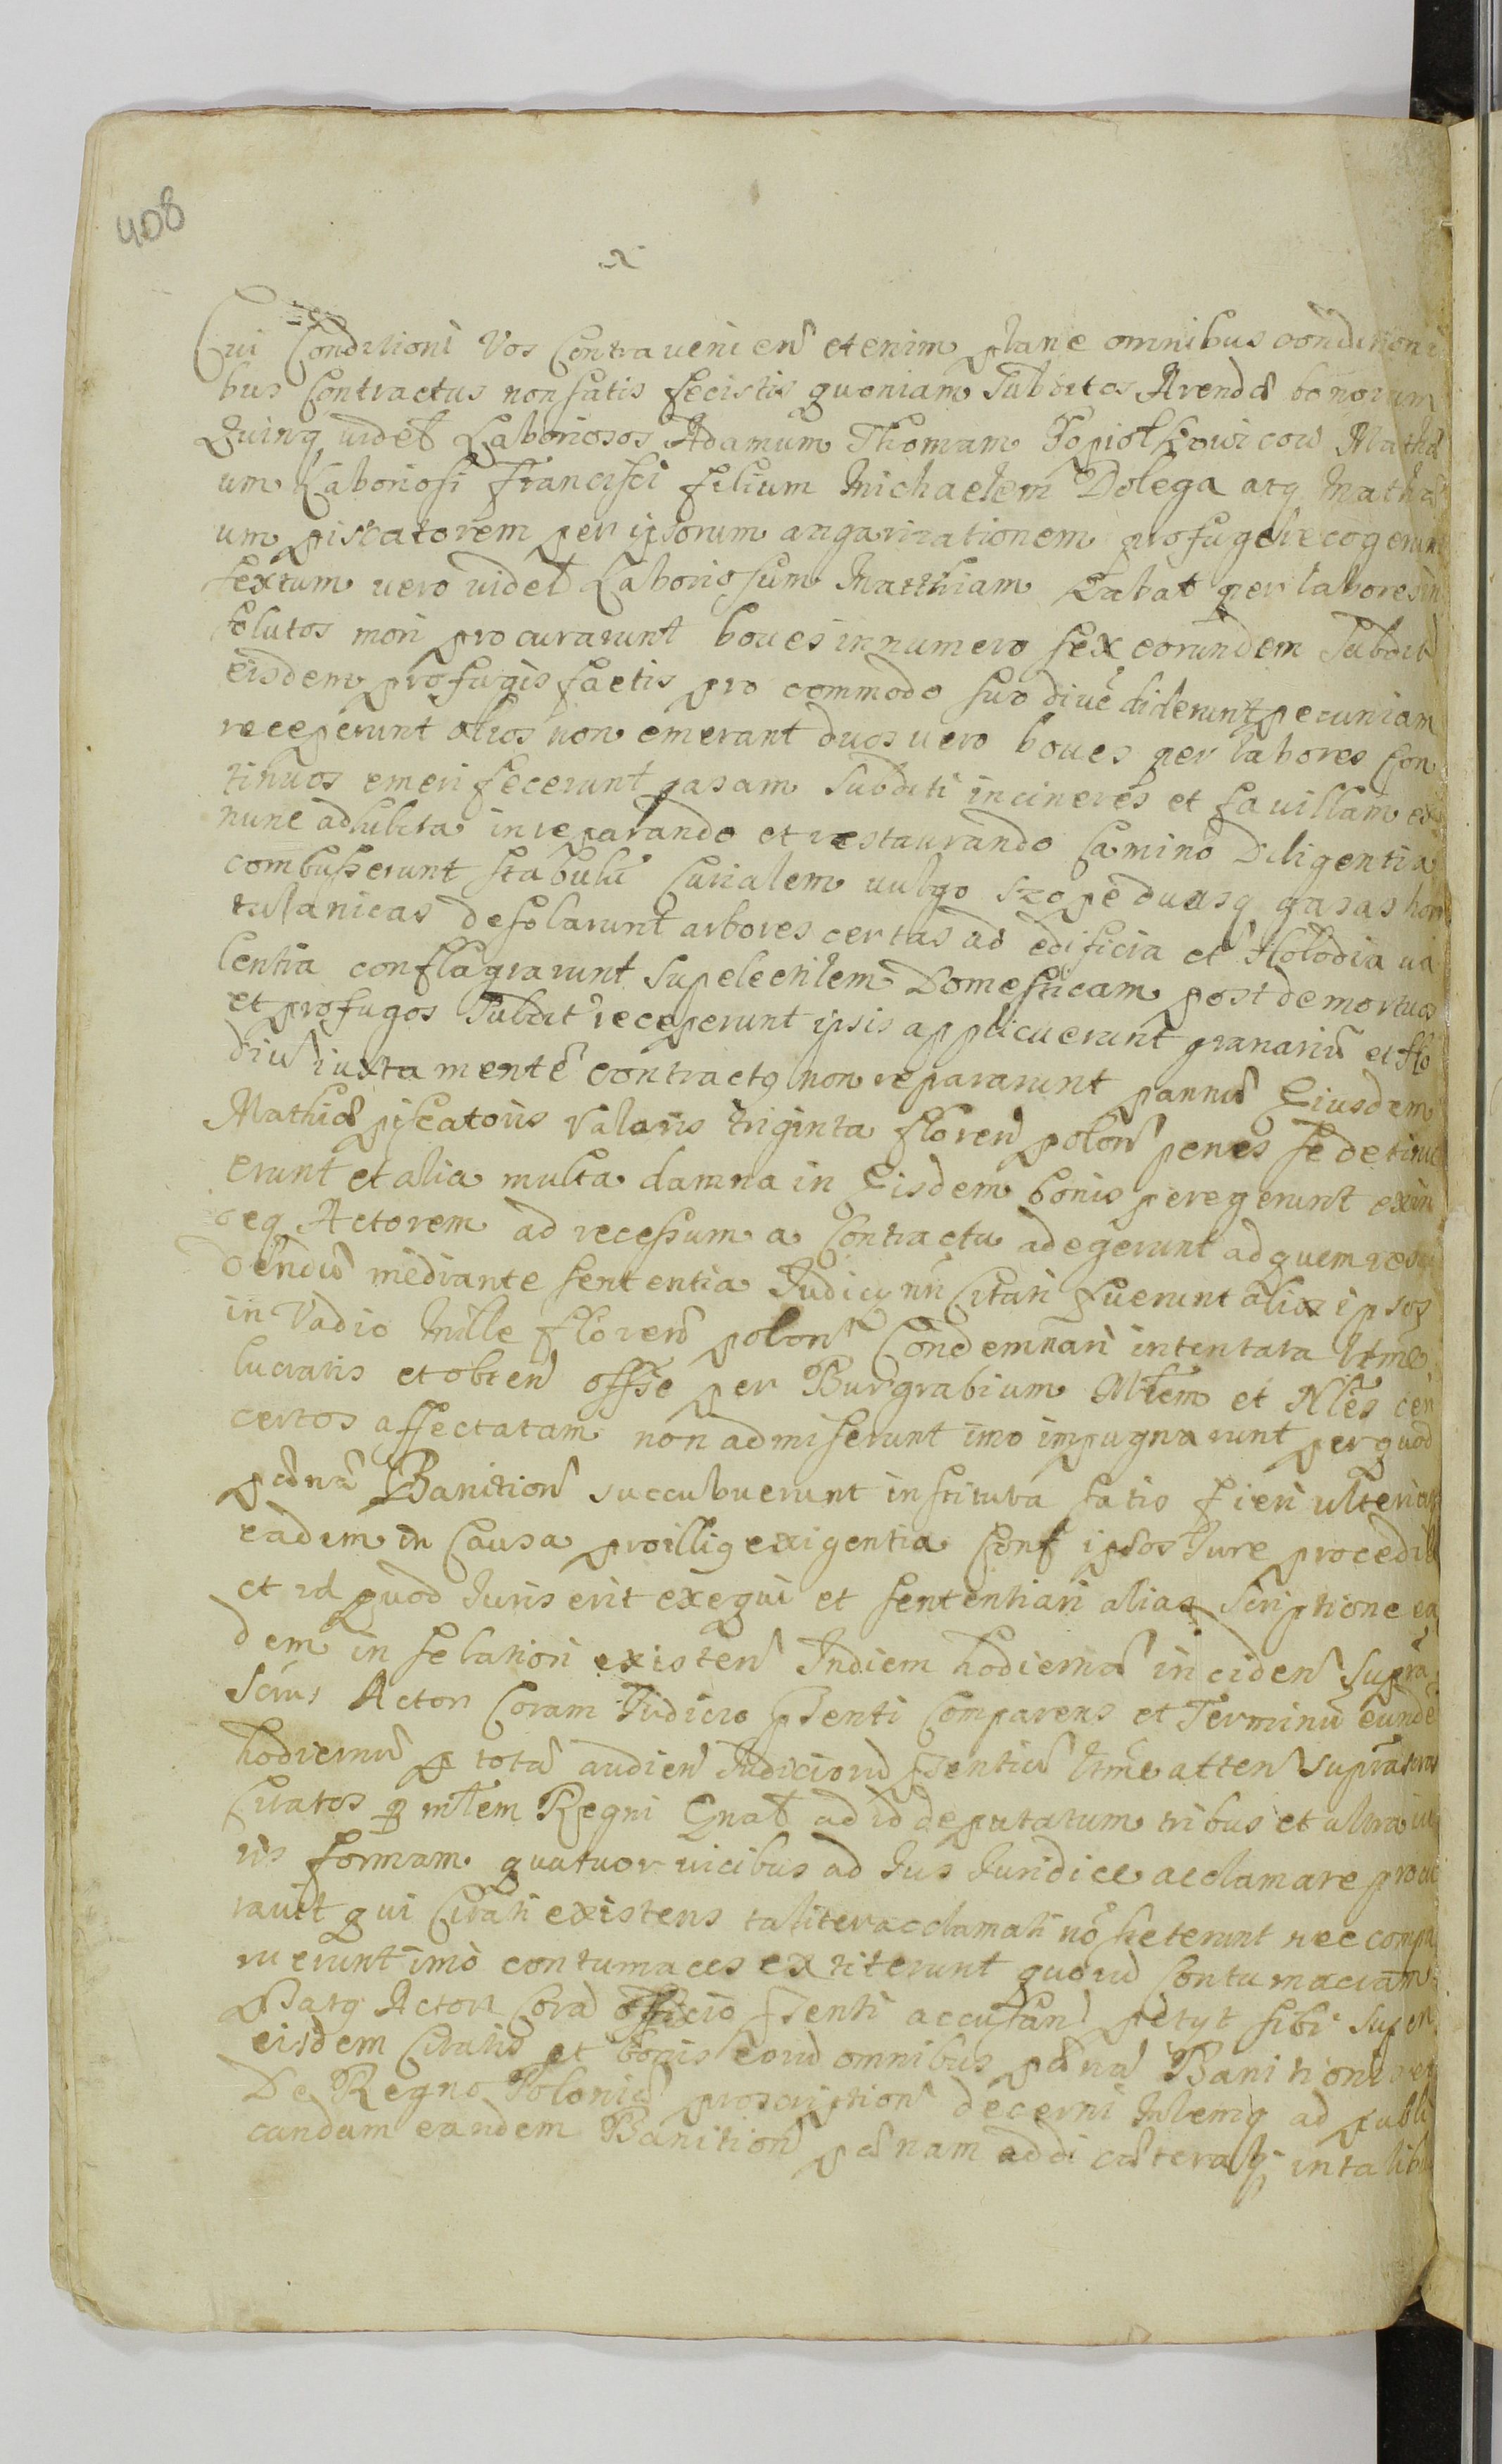 408
Cui Conditioni Vos Contravenien etenim plane omnibus conditioni
bus Contractus non satis fecistis quoniam Subditos Arendæ bonorum
Quinq videlt Laboriosos Adamum Thomam Topiolkowicow Mathæ
um Laboriosi Francisci filium Michaelem Dolega atq Mathæ
um piscatorem per ipsorum angarizationem profugere cogerunt
sextum vero videlt Laboriosum Matthiam Labat per labores in
solutos mori procurarunt boves in numero sex eorundem Subdit
eisdem profugis factis pro commodo suo divendiderunt pecuniam
receperunt alios non emerant duos vero boves per labores Con
tinuos emeri fecerunt gasam Subditi in cineres et favillam ex
nunc adhibita in reparando et restaurando Camino Diligentia
combusserunt stabulu Curialem vulgo Szope duasq gasas hor
tulanicas desolarunt arbores certas ad edificia et Holodia va
lentia conflagrarunt Supelectilem Domesticam post demortuos
et profugos Subdit receperunt ipsis applicuerunt granariu et Ho
diu iuxta mente contractq non repararunt pannu Eiusdem
Mathiæ piscatoris Valoris triginta floren polon penes se detinu
erunt et alia multa damna in Eisdem bonis peregerunt exin
deq Actorem ad recessum a Contractu adegerunt ad quem
dendu mediante sententia Judicy nri Citati fuerunt alias ipsos
in Vadio Mille floren polon Condemnari intentata
lucratis et obten offse per Burgrabium Mlem et Nles cen
certos affectatam non admiserunt imo impugnarunt per quod
pænæ Banition succubuerunt institura satis fieri ulterius
eadem in Causa pro illiq exigentia Conf ipsos Jure procedi
et id quod Juris erit exequi et sententiari alias Scriptione ea
dem in se latiori existen In diem hodierna inciden Supra
Scrius Actor Coram Judicio psenti Comparens et Terminu eunde
hodiernu p tota audien Judicioru psentiu atten supra
Citatos p mlem Regni Gnalt ad id deputatum tribus et ultra iu
ris formam quatuor vicibus ad Jus Juridice acclamare procu
ravit qui Citati existens taliter acclamati no steterunt nec compa
ruerunt imò contumaces extiterunt quoru Contumaciam
Parq Actor Cora officio psenti accusan petyt sibi super
eisdem Citatis et bonis eoru omnibus pæna Banitionis et
De Regno Poloniæ proscription decerni Mlemq ad publi
candum eandem Banition pænam addi cæteraq in talib